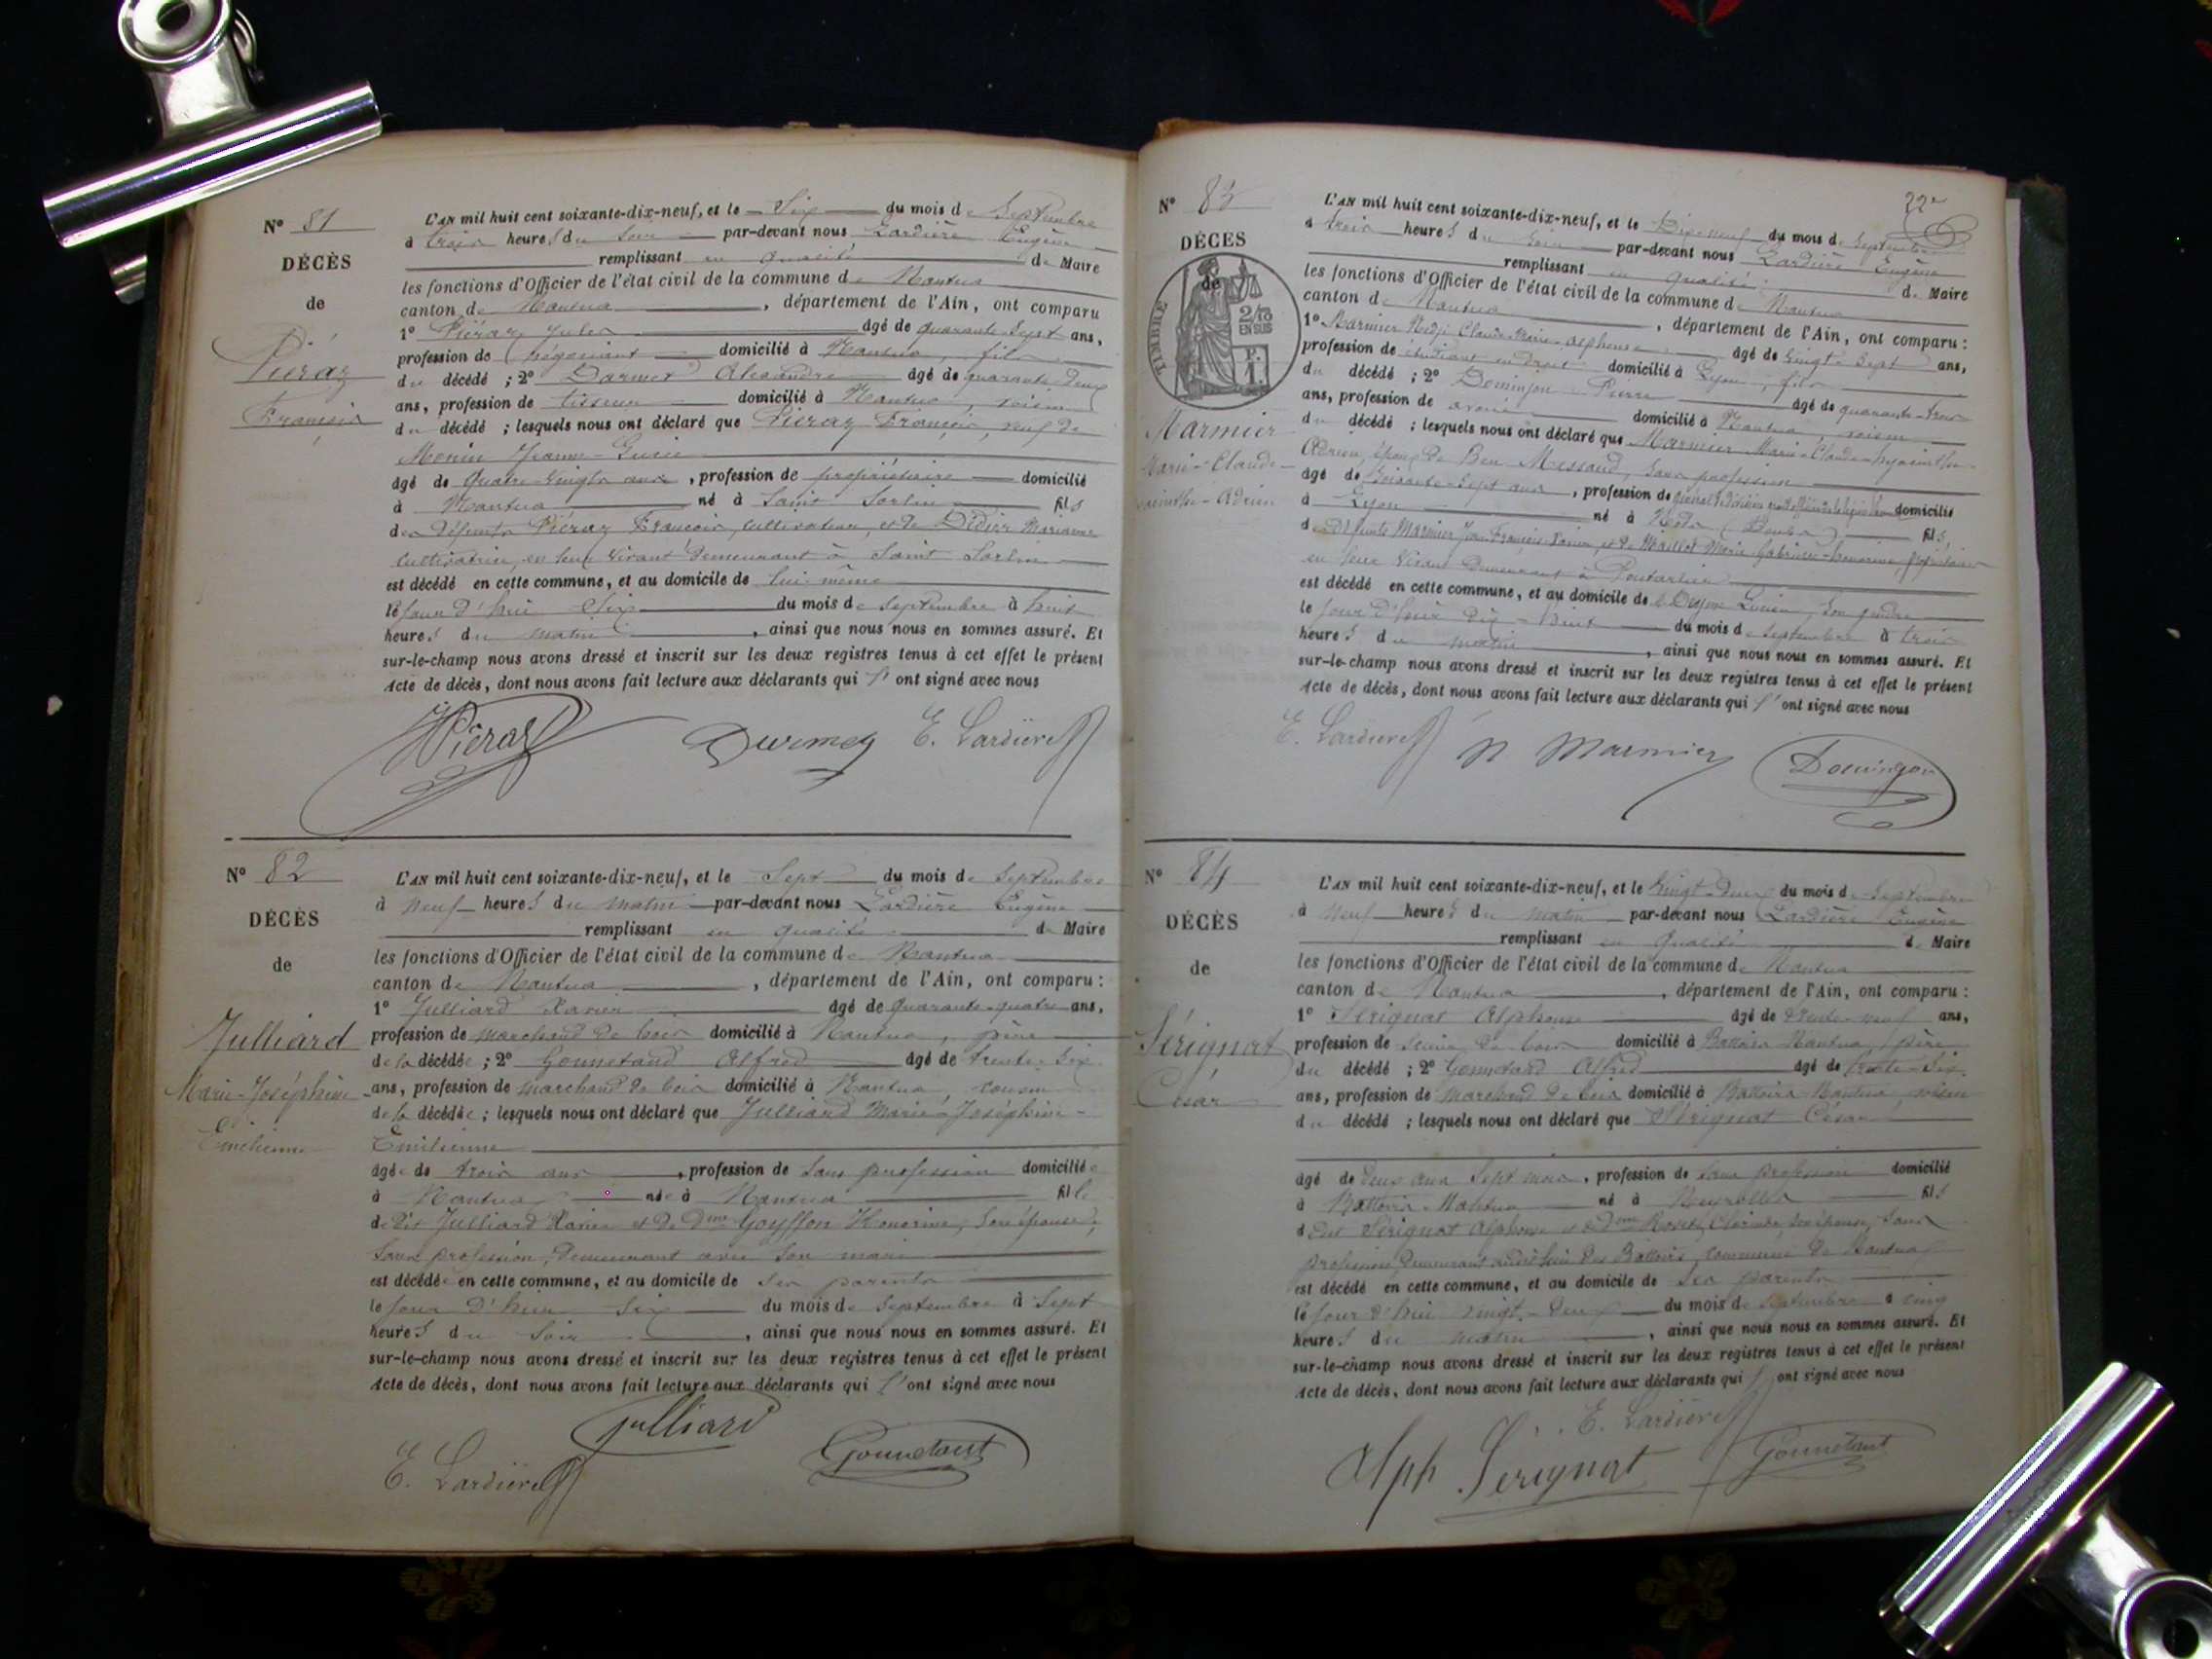 N° 81
DÉCÈS
de
Piéraz
François
L'AN mil huit cent soixante-dix-neuf, et le Six du mois de Septembre
à trois heures du soir par-devant nous Lardière Eugène
remplissant en qualité de Maire
les fonctions d'Officier de l'état civil de la commune de Nantua
canton de Nantua, département de l'Ain, ont comparu
1° Piéraz Jules âgé de quarante-sept ans,
profession de négociant domicilié à Nantua, fils
du décédé ; 2° Darmet Alexandre âgé de quarante-deux
ans, profession de tisseur domicilié à Nantua, voisin
du décédé ; lesquels nous ont déclaré que Piéraz François, veuf de
Monin Jeanne-
âgé de Quatre-vingts ans, profession de propriétaire domicilié
à Nantua né à Saint Sorlin fils
des défunts Piéraz François, cultivateur, et de Didier Marianne
cultivatrice, en leur vivant demeurant à Saint Sorlin
est décédé en cette commune, et au domicile de lui-même
le jour d'hui Six du mois de septembre à huit
heures du matin, ainsi que nous nous en sommes assuré. Et
sur-le-champ nous avons dressé et inscrit sur les deux registres tenus à cet effet le présent
Acte de décès, dont nous avons fait lecture aux déclarants qui l'ont signé avec nous
JPiéraz Durmey E. Lardière
N° 82
DÉCÈS
de
Julliard
Marie-Joséphine
Emilienne
L'AN mil huit cent soixante-dix-neuf, et le Sept du mois de Septembre
à neuf heures du matin par-devant nous Lardière Eugène
remplissant en qualité de Maire
les fonctions d'Officier de l'état civil de la commune de Nantua
canton de Nantua, département de l'Ain, ont comparu :
1° Julliard Xavier âgé de quarante-quatre ans,
profession de marchand de bois domicilié à Nantua, père
de la décédée ; 2° Gonnetand Alfred âgé de trente-six
ans, profession de marchand de bois domicilié à Nantua, cousin
de la décédée ; lesquels nous ont déclaré que Julliard Marie-Joséphine-
Emilienne
âgée de trois ans, profession de sans profession domiciliée
à Nantua née à Nantua fille
de dit Julliard Xavier et de Dme Goyffon Honorine, son épouse,
sans profession, demeurant avec son mari
est décédée en cette commune, et au domicile de ses parents
le jour d'hier six du mois de septembre à sept
heures du soir, ainsi que nous nous en sommes assuré. Et
sur-le-champ nous avons dressé et inscrit sur les deux registres tenus à cet effet le présent
Acte de décès, dont nous avons fait lecture aux déclarants qui l'ont signé avec nous
Julliard
E. Lardière Gonnetand
22
N° 83
DÉCÈS
de
TIMBRE
2/10
EN SUS
F.
1.
Marmier
Marie-Claude-
Hyacinthe-Adrien
L'AN mil huit cent soixante-dix-neuf, et le Dix-neuf du mois de septembre
à trois heures du soir par-devant nous Lardière Eugène
remplissant en qualité de Maire
les fonctions d'Officier de l'état civil de la commune de Nantua
canton de Nantua, département de l'Ain, ont comparu :
1° Marmier Nedji Claude Marie Alphonse âgé de vingt-sept ans,
profession de étudiant en droit domicilié à Lyon, fils
du décédé ; 2° Dominjon Pierre âgé de quarante-trois
ans, profession de avoué domicilié à Nantua, voisin
du décédé ; lesquels nous ont déclaré que Marmier Marie-Claude-hyacinthe-
Adrien, époux de Ben Messaoud, sans profession
âgé de soixante-sept ans, profession de domicilié
à Lyon né à Nods (Doubs) fils
de défunts Marmier Jean François Xavier, et de Maillot Marie Gabrielle propriétaires
en leur vivant demeurant à Pontarlier
est décédé en cette commune, et au domicile de Lucien, son gendre
le jour d'hier dix-huit du mois de septembre à trois
heures du matin, ainsi que nous nous en sommes assuré. Et
sur-le-champ nous avons dressé et inscrit sur les deux registres tenus à cet effet le présent
Acte de décès, dont nous avons fait lecture aux déclarants qui l'ont signé avec nous
E. Lardière N Marmier Dominjon
N° 84
DÉCÈS
de
Sérignat
César
L'AN mil huit cent soixante-dix-neuf, et le vingt-deux du mois de septembre
à neuf heures du matin par-devant nous Lardière Eugène
remplissant en qualité de Maire
les fonctions d'Officier de l'état civil de la commune de Nantua
canton de Nantua, département de l'Ain, ont comparu :
1° Sérignat Alphonse âgé de trente-neuf ans,
profession de scieur de bois domicilié à Battoirs Nantua, père
du décédé ; 2° Gonnetand Alfred âgé de trente-six
ans, profession de marchand de bois domicilié à Battoirs Nantua, voisin
du décédé ; lesquels nous ont déclaré que Sérignat César
âgé de deux ans sept mois, profession de sans profession domicilié
à Battoirs-Nantua né à Neyrolles fils
de dit Sérignat Alphonse et de dme Rosset Clarisse son épouse, sans
profession, demeurant audit lieu des Battoirs, commune de Nantua
est décédé en cette commune, et au domicile de ses parents
le jour d'hui vingt-deux du mois de septembre à cinq
heures du matin, ainsi que nous nous en sommes assuré. Et
sur-le-champ nous avons dressé et inscrit sur les deux registres tenus à cet effet le présent
Acte de décès, dont nous avons fait lecture aux déclarants qui l'ont signé avec nous
E. Lardière
Alph Sérignat Gonnetand